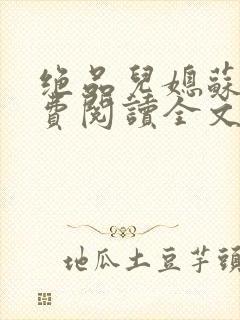 绝品兒媳蘇
費閱讀全文
地瓜土豆芋頭